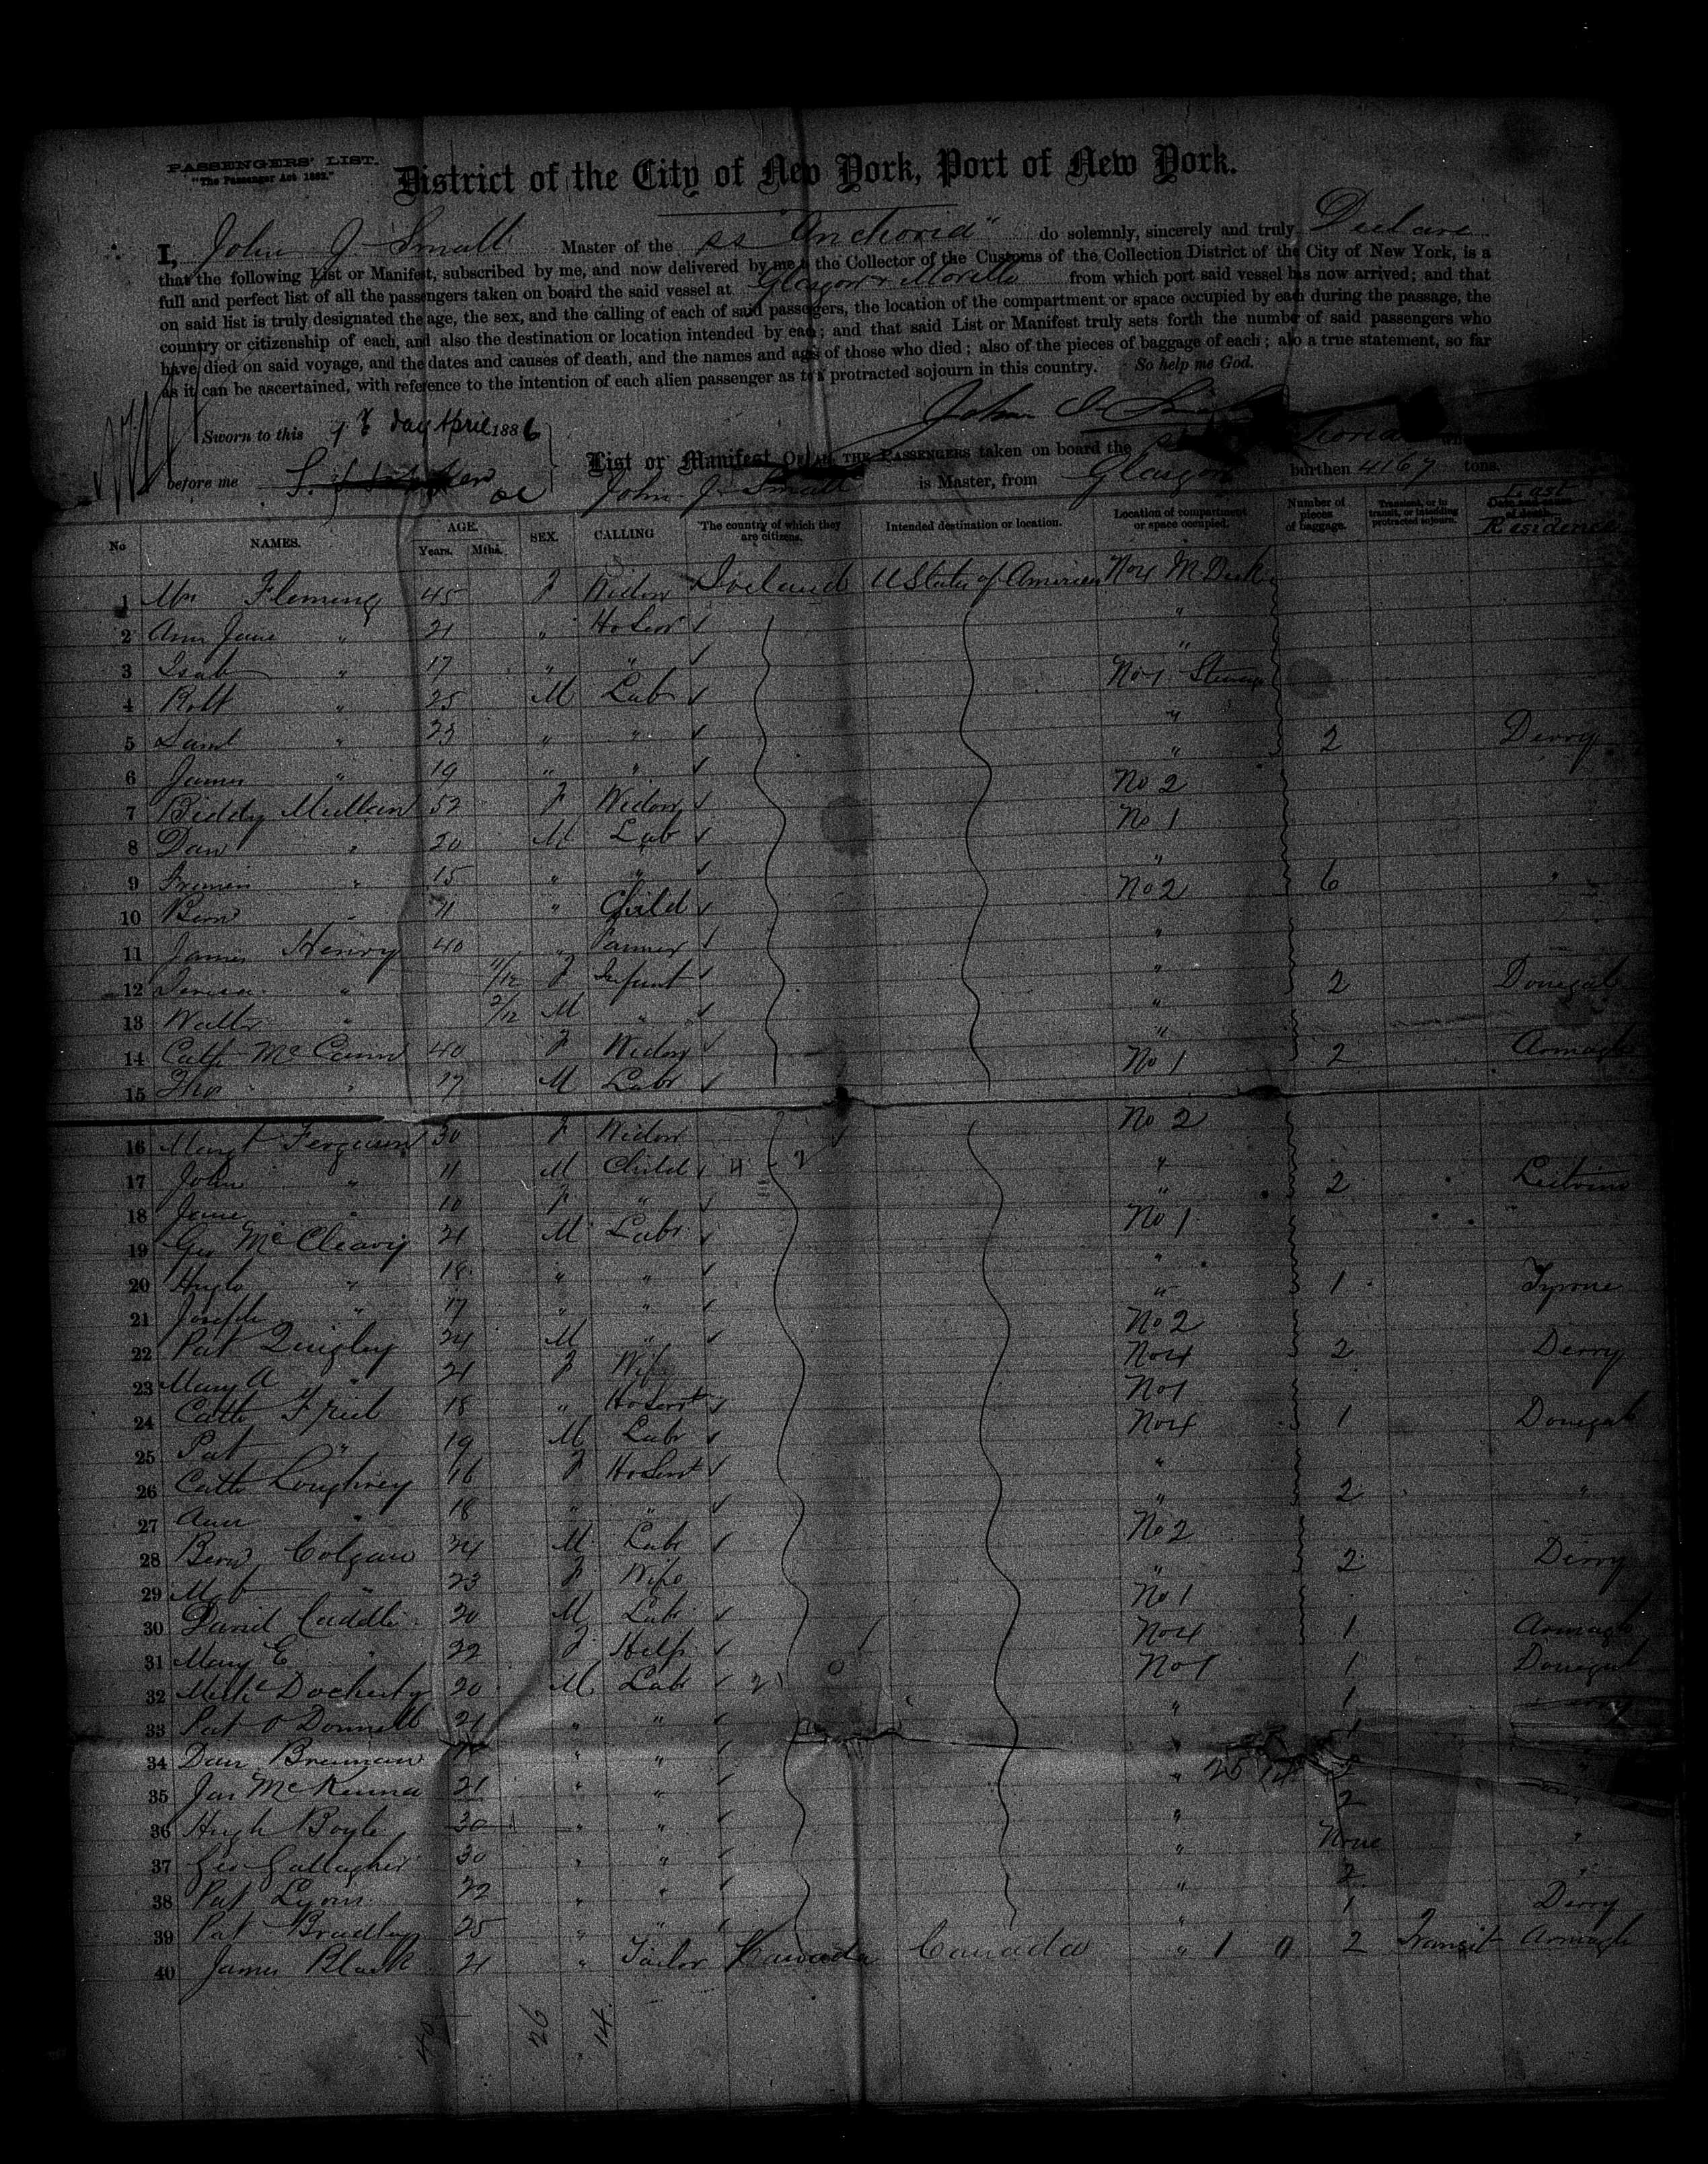 PASSENGERS' LIST.
"The Passenger Act 1882."
District of the City of New York, Port of New York.
I, John J. Small Master of the ss "Anchoria" do solemnly, sincerely and truly Declare
that the following List or Manifest, subscribed by me, and now delivered by me to the Collector of the Customs of the Collection District of the City of New York, is a
full and perfect list of all the passengers taken on board the said vessel at Glasgow & Moville from which port said vessel has now arrived; and that
on said list is truly designated the age, the sex, and the calling of each of said passengers, the location of the compartment or space occupied by each during the passage, the
country or citizenship of each, and also the destination or location intended by each; and that said List or Manifest truly sets forth the number of said passengers who
have died on said voyage, and the dates and causes of death, and the names and ages of those who died; also of the pieces of baggage of each; also a true statement, so far
as it can be ascertained, with reference to the intention of each alien passenger as to a protracted sojourn in this country. So help me God.
John J. Small
Sworn to this day April 1886
before me
List or Manifest OF ALL THE PASSENGERS taken on board the
John J. Small is Master, from Glasgow burthen 4167 tons.
No NAMES. AGE. Years. Mths. SEX. CALLING The country of which they are citizens. Intended destination or location. Location of compartment or space occupied. Number of pieces of baggage. Transient, or in transit, or intending protracted sojourn. Last Residence
1 Mrs Fleming 45 F Widow Ireland U States of America No 4 M Deck
2 Ann Jane " 21 " Ho Serv "
3 Isab " 17 " " "
4 Robt " 25 M Lab No 1 Steerage
5 Saml " 23 " " " 2 Derry
6 James " 19 " " "
7 Biddy Mullan 52 F Widow No 2
8 Dan " 20 M Lab No 1
9 " 15 " " "
10 Bern " 11 " Child No 2 6 "
11 James Henry 40 " Farmer "
12 " 11/12 F Infant " 2 Donegal
13 Walter " 2/12 M " "
14 Cath Mc 40 F Widow " 2 Armagh
15 Tho " 17 M Labr No 1
16 Margt Ferguson 30 F Widow No 2
17 John " 11 M Child " 2 Leitrim
18 Jane " 10 F " "
19 Geo Mc Cleary 21 M Labr No 1
20 Hugh " 18 " " " 1 Tyrone
21 Joseph " 17 " " "
22 Pat Quigley 24 M " No 2 2 Derry
23 Mary A " 21 F Wife No 4
24 Cath Friel 18 " Ho Servt No 1 1 Donegal
25 Pat " 19 M Labr No 4
26 Cath Loughrey 16 F Ho Servt " 2 "
27 Ann " 18 " " "
28 Bern Colgan 24 M Labr No 2 2 Derry
29 " 23 F Wife "
30 David Cuddle 20 M Labr No 1
31 Mary E " 22 F Help No 4 1 Armagh
32 Docherty 20 M Labr No 1 1 Donegal
33 Pat O Donnell 21 " " " 1
34 Dan Brennan " " " 1
35 Jas McKenna 21 " " " 2 "
36 Hugh Boyle 30 " " " 2
37 Geo Gallagher 30 " " " None "
38 Pat Lyons 22 " " " 2 "
39 Pat Bradley 25 " " " 1 Derry
40 James Black 21 " Tailor Canada Canada " 1 0 2 Transit Armagh
40 26 14